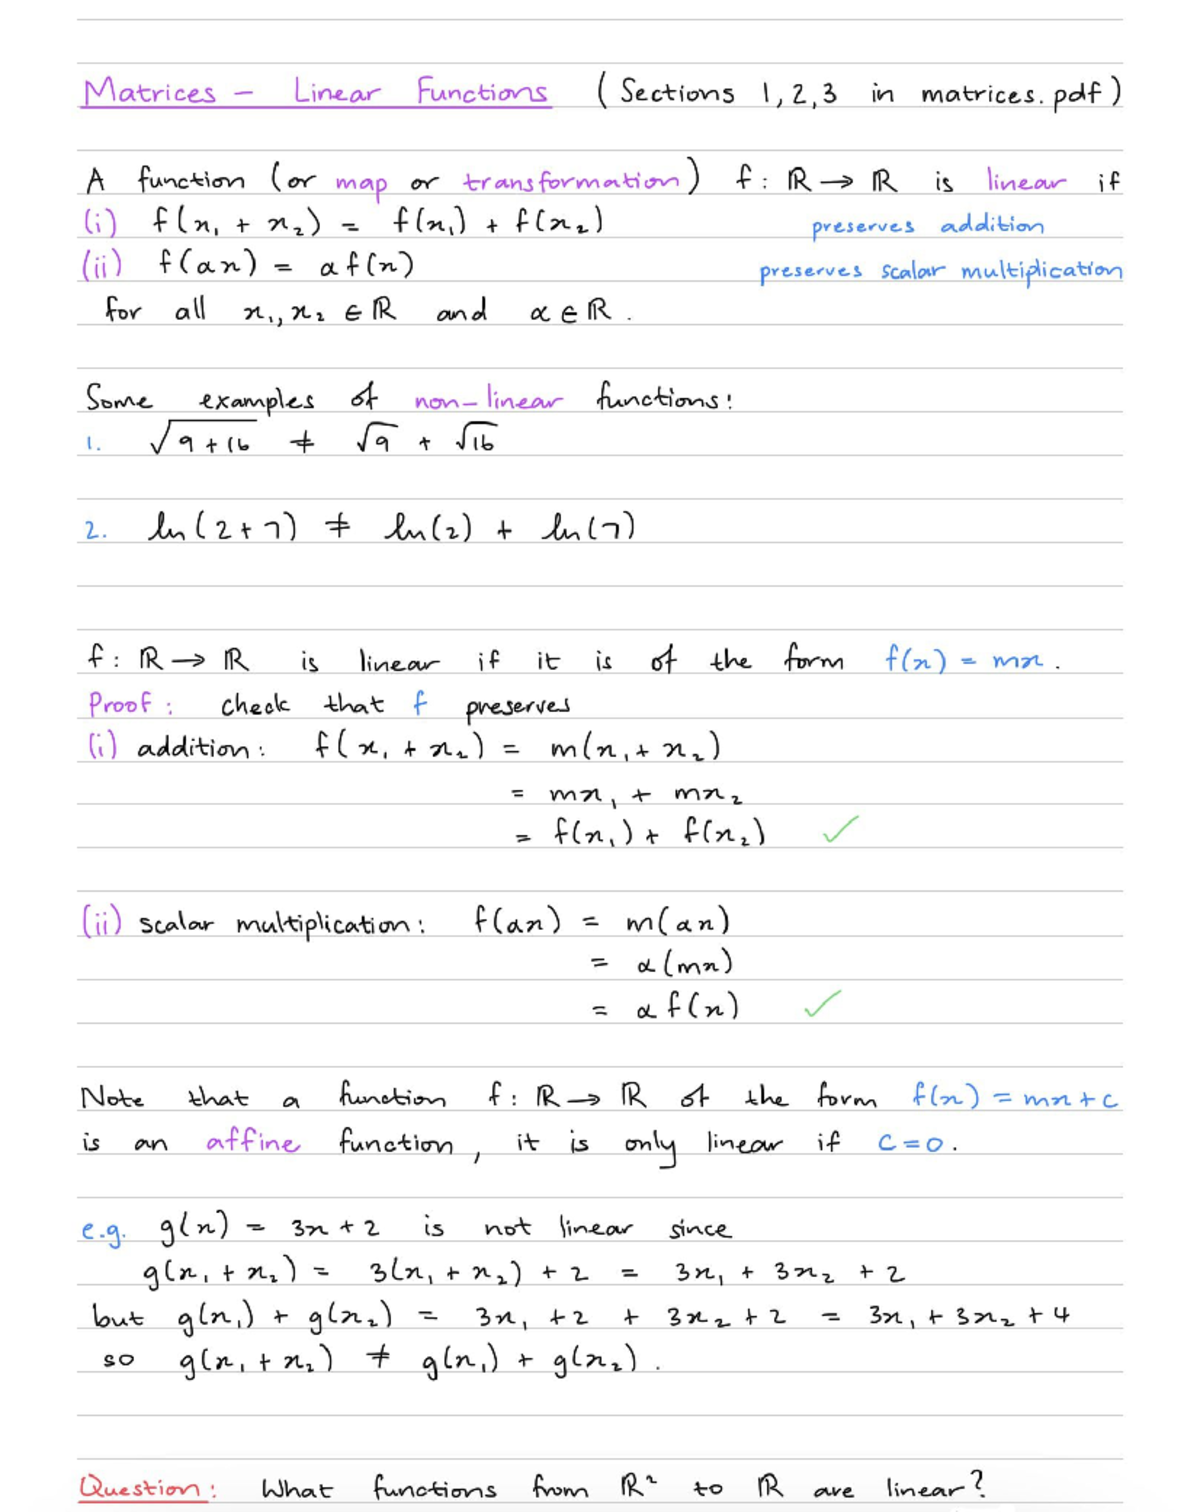 Matrices - Linear Functions (Sections 1,2,3 in matrices.pdf)
A function (or map or transformation) f: ℝ → ℝ is linear if
(i) f(x₁ + x₂) = f(x₁) + f(x₂) preserves addition
(ii) f(αx) = αf(x) preserves scalar multiplication
for all x₁, x₂ ∈ ℝ and α ∈ ℝ.
Some examples of non-linear functions:
1. √(9+16) ≠ √9 + √16
2. ln(2+7) ≠ ln(2) + ln(7)
f: ℝ → ℝ is linear if it is of the form f(x) = mx.
Proof: check that f preserves
(i) addition: f(x₁ + x₂) = m(x₁ + x₂)
= mx₁ + mx₂
= f(x₁) + f(x₂) ✓
(ii) scalar multiplication: f(αx) = m(αx)
= α(mx)
= αf(x) ✓
Note that a function f: ℝ → ℝ of the form f(x) = mx+c
is an affine function, it is only linear if c=0.
e.g. g(x) = 3x+2 is not linear since
g(x₁ + x₂) = 3(x₁ + x₂) + 2 = 3x₁ + 3x₂ + 2
but g(x₁) + g(x₂) = 3x₁ +2 + 3x₂ + 2 = 3x₁ + 3x₂ + 4
so g(x₁ + x₂) ≠ g(x₁) + g(x₂).
Question: What functions from ℝ² to ℝ are linear?